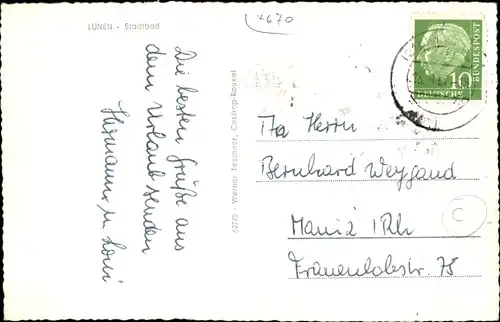 LÜNEN - Stadtbad
4670
Die besten Grüße aus
dem Urlaub senden
Hermann u. Loni
5227/5 - Werner Teschner, Castrop-Rauxel
10
DEUTSCHE
BUNDESPOST
Herrn
Bernhard Weygand
Mainz / Rh
Frauenlobstr. 78
C